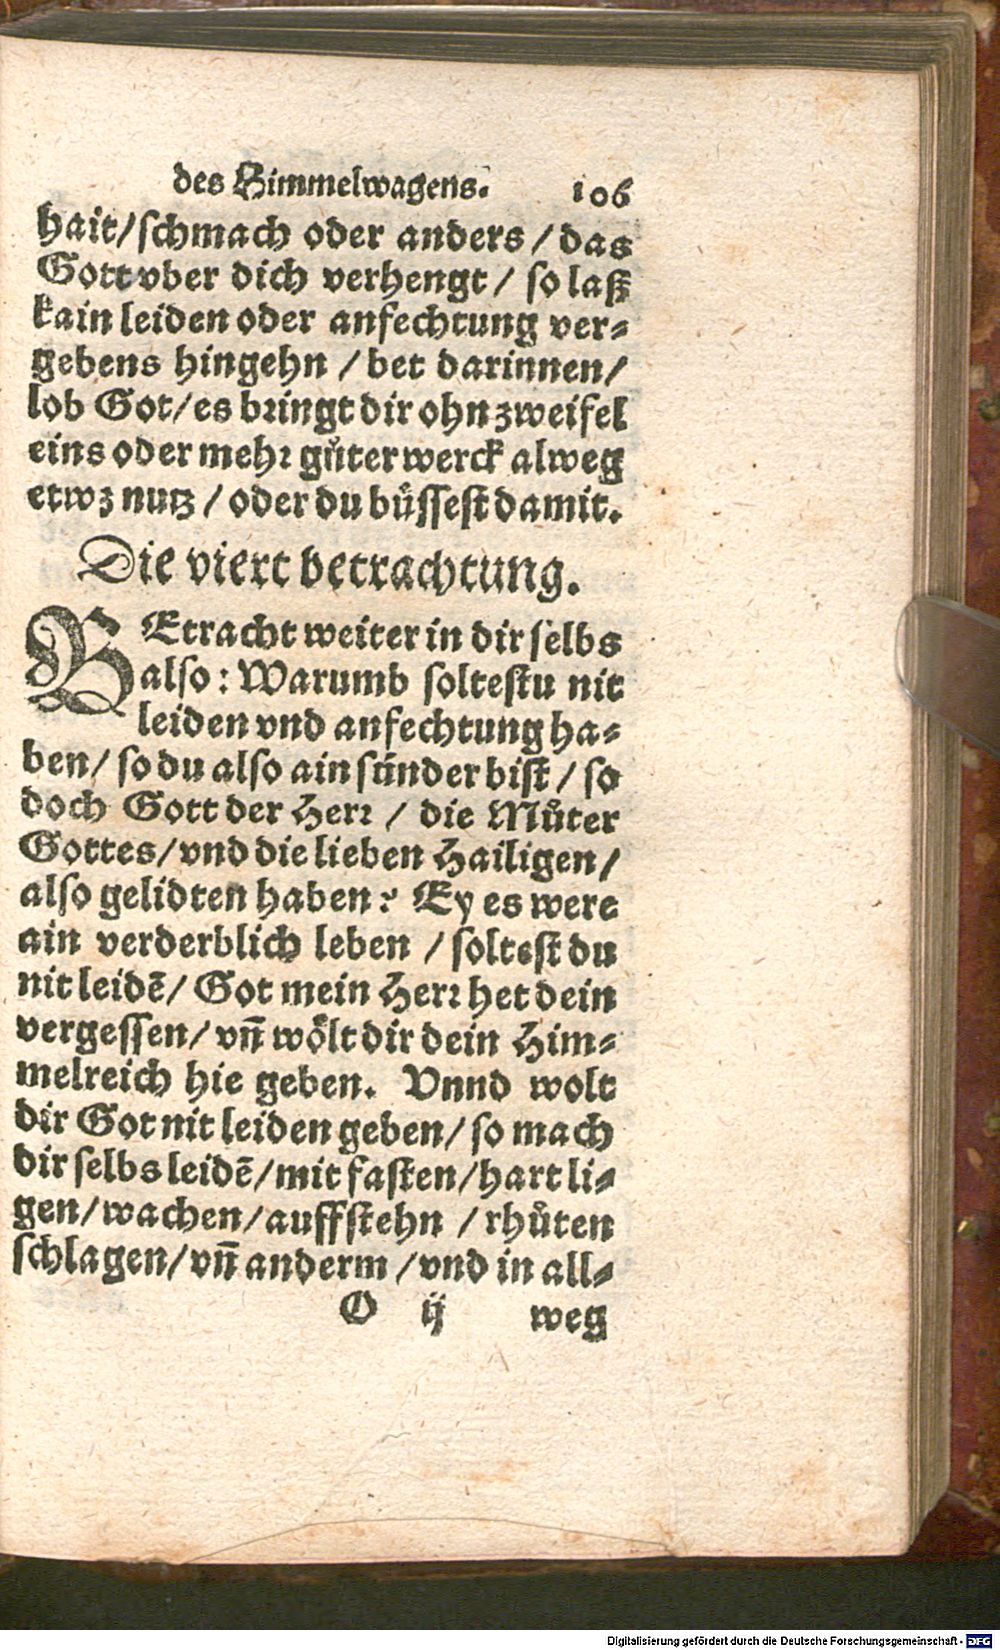 des Himmelwagens. 106
hait/schmach oder anders / das
Gott vber dich verhengt / so laß
kain leiden oder anfechtung ver-
gebens hingehn / bet darinnen/
lob Got/es bringt dir ohn zweifel
eins oder mehr gůter werck alweg
etwz nutz / oder du büssest damit.
Die viert betrachtung.
BEtracht weiter in dir selbs
also: Warumb soltestu nit
leiden vnd anfechtung ha-
ben/ so du also ain sünder bist / so
doch Gott der Herr / die Můter
Gottes/vnd die lieben Hailigen/
also gelidten haben? Ey es were
ain verderblich leben / soltest du
nit leidē/ Got mein Herr het dein
vergessen/ vñ wölt dir dein Him-
melreich hie geben. Vnnd wolt
dir Got nit leiden geben/ so mach
dir selbs leidē/mit fasten/hart li-
gen/wachen/auffstehn / rhůten
schlagen/vñ anderm /vnd in all-
O ij weg
Digitalisierung gefördert durch die Deutsche Forschungsgemeinschaft - DFG